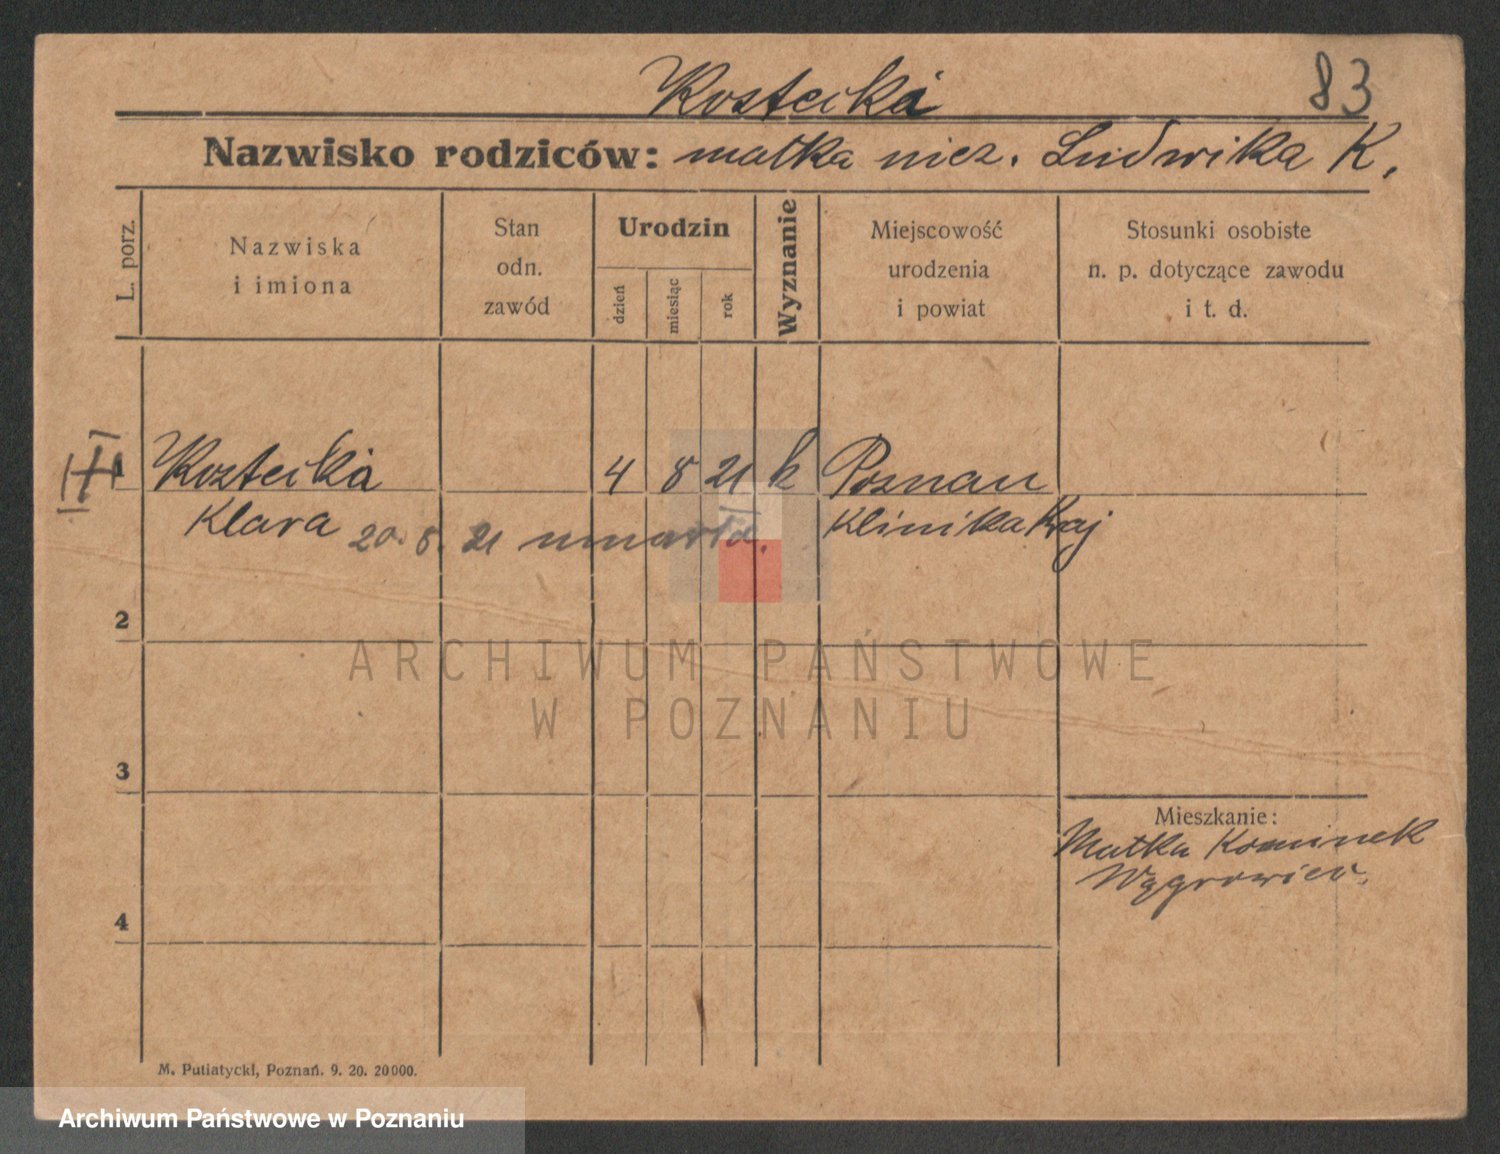 Kostecka
83
Nazwisko rodziców: matka niez. Ludwika K.
L. porz.
Nazwiska
i imiona
Stan
odn.
zawód
Urodzin
dzień
miesiąc
rok
Wyznanie
Miejscowość
urodzenia
i powiat
Stosunki osobiste
n. p. dotyczące zawodu
i t. d.
1 Kostecka 4 8 21 k Poznań
Klara 20. 8. 21 umarła. Klinika Kraj
2
3
Mieszkanie:
Matka Kominek
Wągrowiec.
4
M. Putiatycki, Poznań. 9. 20. 20000.
ARCHIWUM PAŃSTWOWE
W POZNANIU
Archiwum Państwowe w Poznaniu